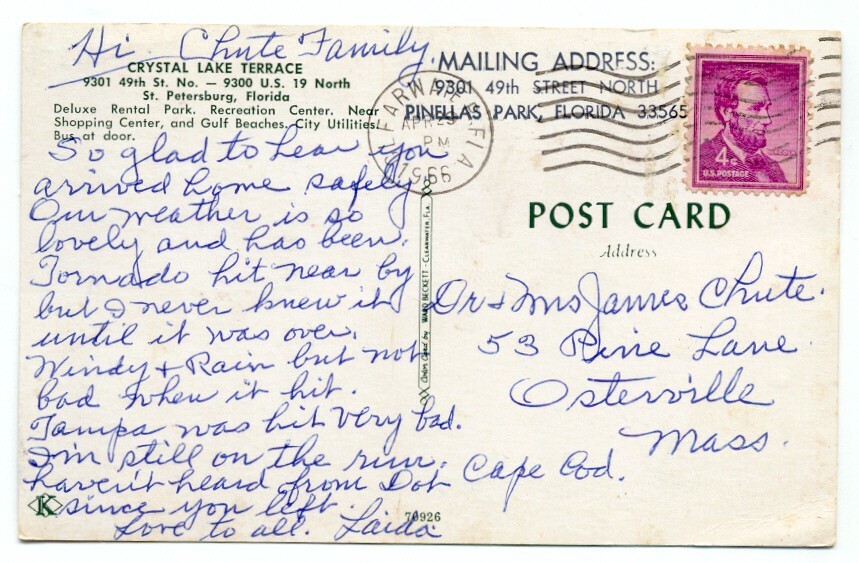 Hi Chute Family.
CRYSTAL LAKE TERRACE
9301 49th St. No. — 9300 U.S. 19 North
St. Petersburg, Florida
Deluxe Rental Park. Recreation Center. Near
Shopping Center, and Gulf Beaches. City Utilities.
Bus at door.
So glad to hear you
arrived home safely
Our weather is so
lovely and has been.
Tornado hit near by
but I never knew it
until it was over.
Windy & Rain but not
bad when it hit.
Tampa was hit very bad.
I'm still on the run.
haven't heard from Dot
since you left.
Love to all. Laida
K
76926
Color Card by WARD BECKETT - CLEARWATER, FLA.
MAILING ADDRESS:
9301 49th STREET NORTH
PINELLAS PARK, FLORIDA 33565
APR 25
PM
1966
4¢
U.S. POSTAGE
POST CARD
Address
Dr & Mrs James Chute.
53 Pine Lane
Osterville
Mass.
Cape Cod.